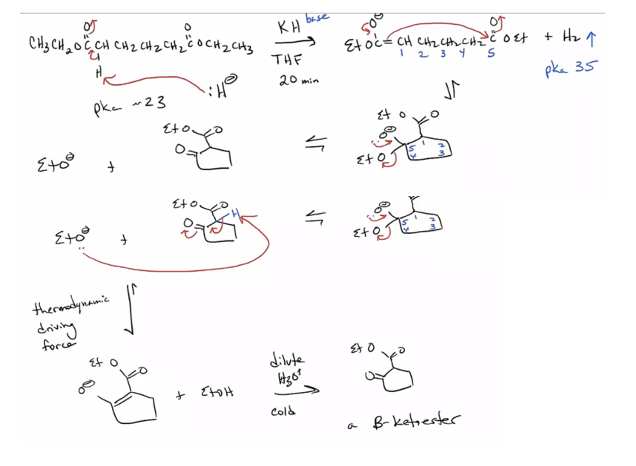 O O
CH3CH2OCCHCH2CH2CH2COCH2CH3
H
:H⊖
pka ~23
KH base
THF
20 min
O⊖ O
EtOC=CHCH2CH2CH2COEt + H2↑
1 2 3 4 5
pka 35
⇌
EtO⊖ +
EtO O
O
⇌
EtO O
O⊖
EtO
1 2 3 4 5
EtO⊖ +
EtO O
O H
⇌
O⊖
EtO
1 2 3 4 5
thermodynamic
driving
force
EtO O
O⊖
+ EtOH
dilute
H3O+
cold
EtO O
O
a B-ketoester